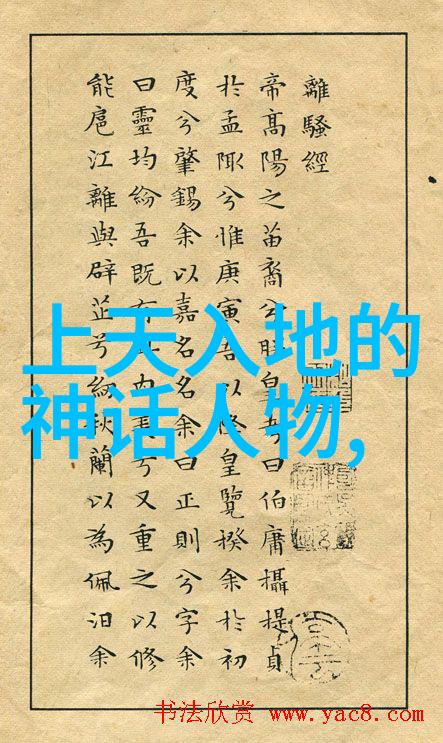 離騷經
帝高陽之苗裔兮朕皇考曰伯庸攝提貞
於孟陬兮惟庚寅吾以降皇覽揆余於初
度兮肇錫余以嘉名名余曰正則兮字余
曰靈均紛吾既有此内美兮又重之以修
能扈江離與辟芷兮紉秋蘭以為佩汩余
上天入地的
神话人物,
书法欣赏 www.yac8.com